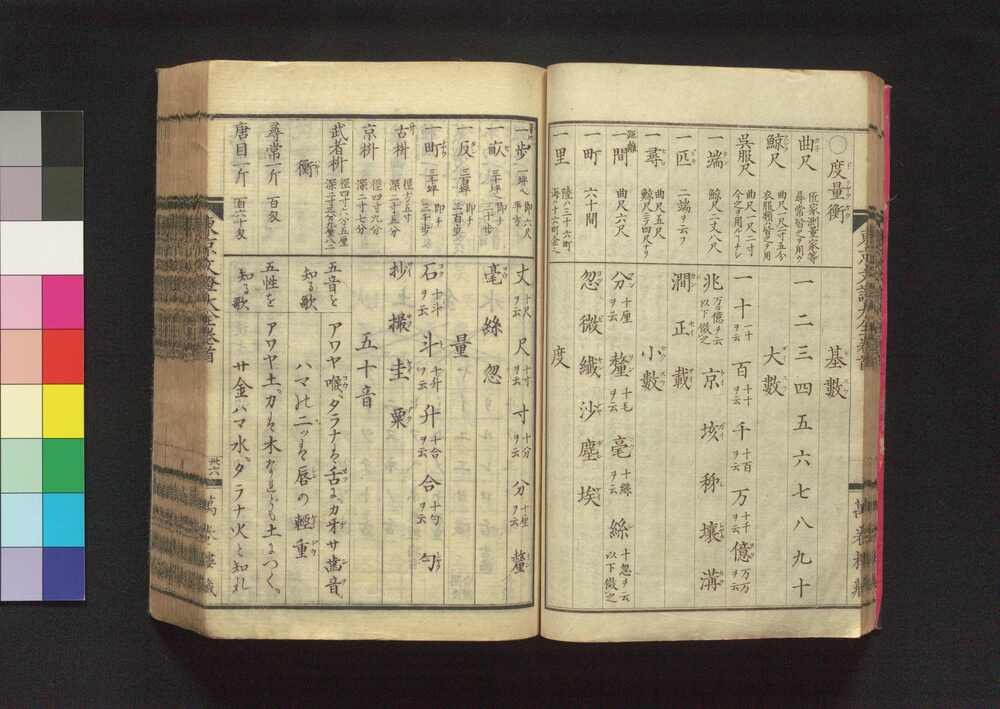 〇度量衡
曲尺 匠家測量家等尋常皆之ヲ用ウ
鯨尺 曲尺一尺二寸五分衣服類皆之ヲ用
呉服尺 曲尺一尺二寸今之ヲ用ル
一端 鯨尺二丈八尺
一匹 二端ヲ云フ
一尋 曲尺五尺 鯨尺三
距離
一間 曲尺六尺
一町 六十間
一里 陸ハ三十六町 海ハ十六町
基數
一二三四五六七八九十
大數
一十 一十ヲ云 百 十十ヲ云 千 十百ヲ云 万 十千ヲ云 億 万万ヲ云
兆 万億ヲ云以下傚之 京 垓 称 壤 溝
澗 正 載
小數
分 十厘ヲ云 釐 十毛ヲ云 毫 十絲ヲ云 絲 十忽ヲ云以下傚之
忽 微 纎 沙 塵 埃
度
一歩 一坪 即チ六尺平方
一畝 三十坪 即チ三十歩
一反 三百坪 即チ三百歩
一町 三千坪 即チ三千歩
古枡
京枡 徑四寸九分 深二寸七分
武者枡 徑四寸六分五厘
衡
尋常一斤 百匁
唐目一斤 百六十匁
丈 十尺ヲ云 尺 十寸ヲ云 寸 十分ヲ云 分 十厘ヲ云 釐
毫 絲 忽
量
石 十斗ヲ云 斗 十升ヲ云 升 十合ヲ云 合 十勺ヲ云 勺
抄 撮 圭 粟
五十音
五音を知る歌 アワヤ喉、タラナる舌に、カ牙サ齒音、
ハマの二つハ唇の輕重
五性を知る歌 アワヤ土、カハ木なれども土につく、
サ金ハマ水、タラナ火と知れ
東京文證大全卷首
卅六
萬笈樓藏